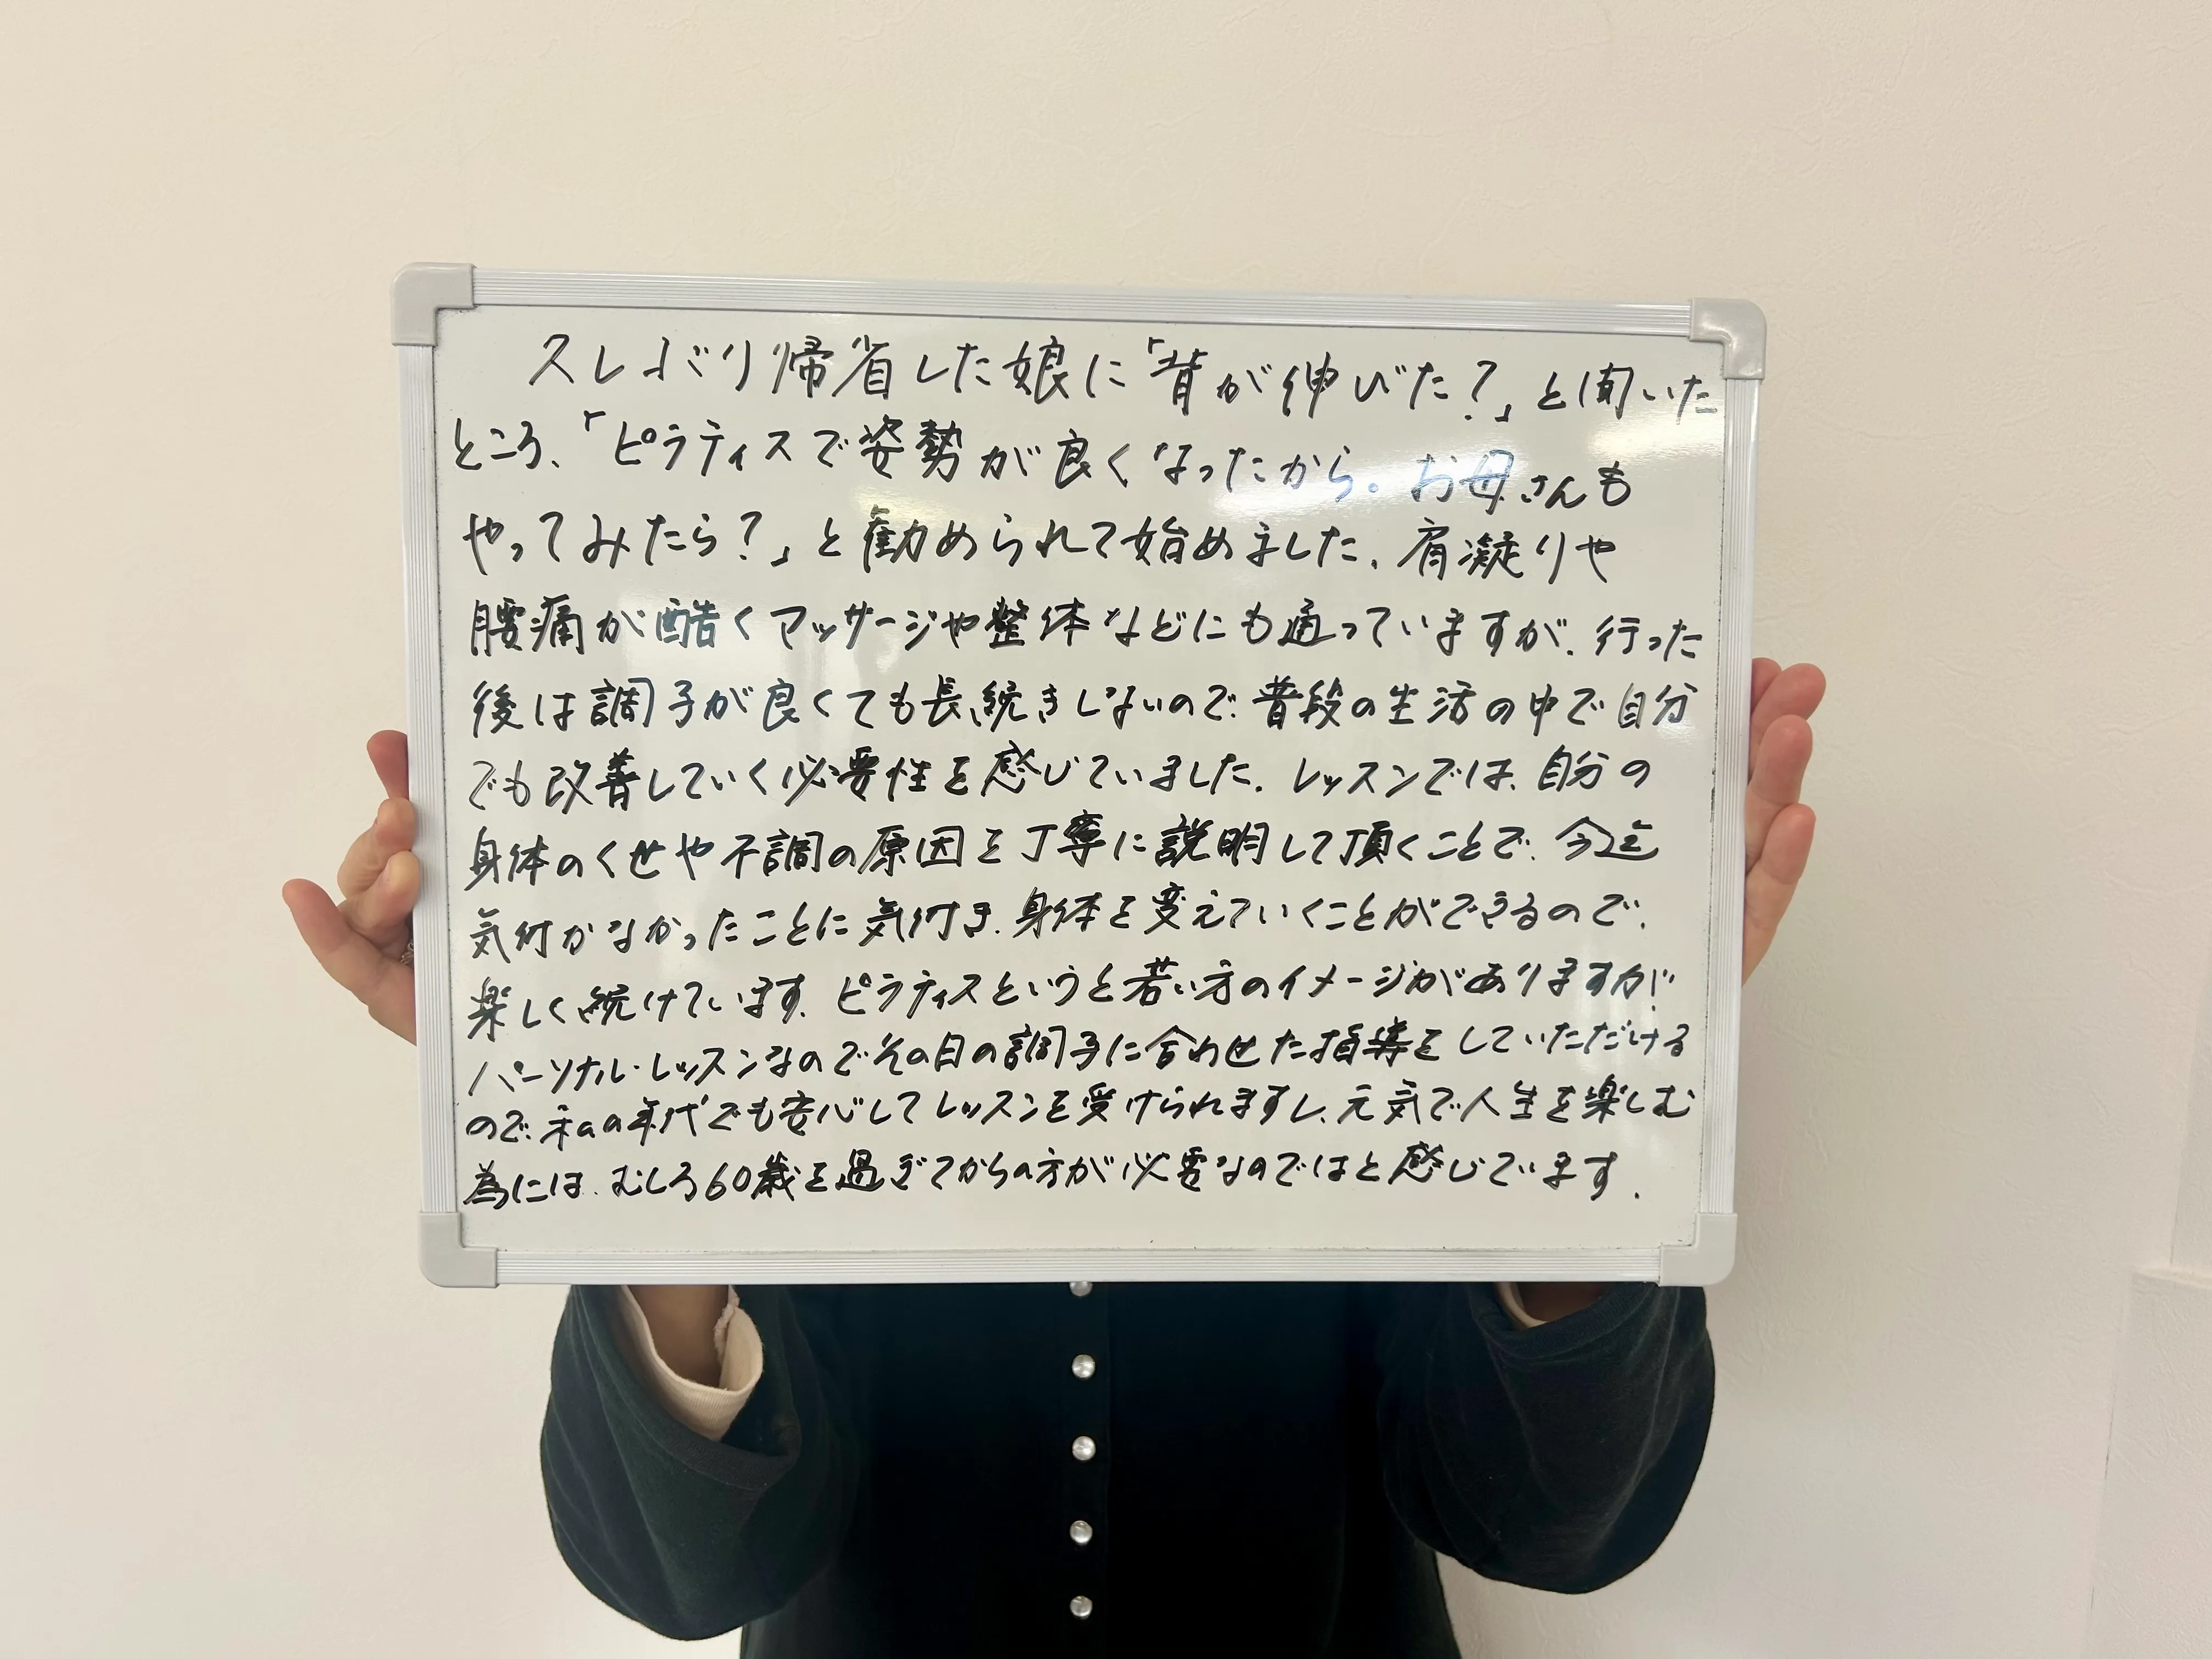 久しぶり帰省した娘に「背が伸びた？」と聞いた
ところ、「ピラティスで姿勢が良くなったから。お母さんも
やってみたら？」と勧められて始めました、肩凝りや
腰痛が酷くマッサージや整体などにも通っていますが、行った
後は調子が良くても長続きしないので、普段の生活の中で自分
でも改善していく必要性を感じていました。レッスンでは、自分の
身体のくせや不調の原因を丁寧に説明して頂くことで、今迄
気付かなかったことに気付き、身体を変えていくことができるので、
楽しく続けています。ピラティスというと若い方のイメージがありますが、
パーソナル・レッスンなのでその日の調子に合わせた指導をしていただける
ので、私の年代でも安心してレッスンを受けられますし、元気で人生を楽しむ
為には、むしろ60歳を過ぎてからの方が必要なのではと感じています．